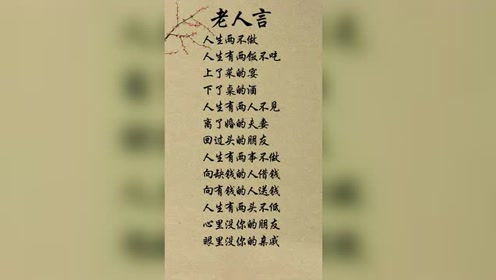 老人言
人生两不做
人生有两饭不吃
上了菜的宴
下了桌的酒
人生有两人不见
离了婚的夫妻
回过头的朋友
人生有两事不做
向缺钱的人借钱
向有钱的人送钱
人生有两头不低
心里没你的朋友
眼里没你的亲戚